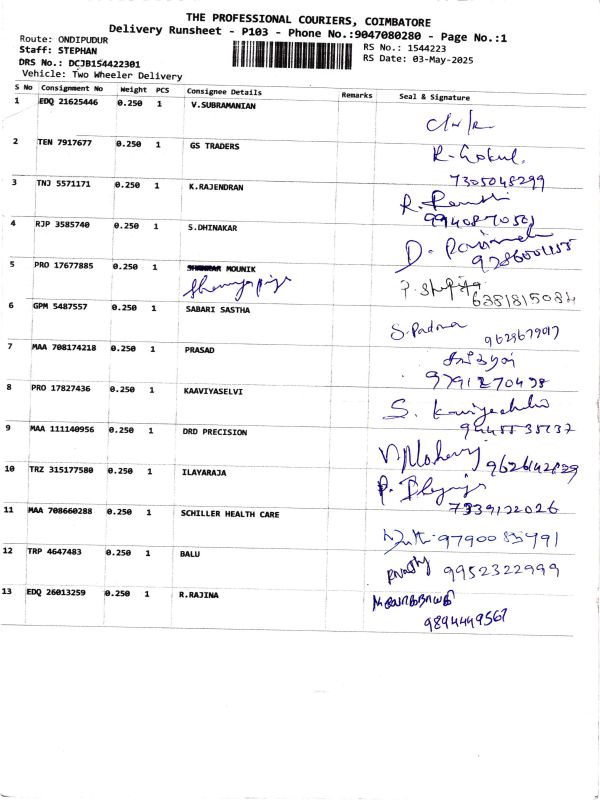 THE PROFESSIONAL COURIERS, COIMBATORE
Delivery Runsheet - P103 - Phone No.:9047080280 - Page No.:1
Route: ONDIPUDUR
Staff: STEPHAN
DRS No.: DCJB154422301
Vehicle: Two Wheeler Delivery
RS No.: 1544223
RS Date: 03-May-2025
S No Consignment No Weight PCS Consignee Details Remarks Seal & Signature
1 EDQ 21625446 0.250 1 V.SUBRAMANIAN
2 TEN 7917677 0.250 1 GS TRADERS R. Gokul.
7305048299
3 TNJ 5571171 0.250 1 K.RAJENDRAN R.
9940870501
4 RJP 3585740 0.250 1 S.DHINAKAR D.
5 PRO 17677885 0.250 1 MOUNIK
6381815034
6 GPM 5487557 0.250 1 SABARI SASTHA S. Padma
7 MAA 708174218 0.250 1 PRASAD
9791270498
8 PRO 17827436 0.250 1 KAAVIYASELVI S.
9 MAA 111140956 0.250 1 DRD PRECISION
9626142829
10 TRZ 315177580 0.250 1 ILAYARAJA P.
7339122026
11 MAA 708660288 0.250 1 SCHILLER HEALTH CARE
12 TRP 4647483 0.250 1 BALU 9952322999
13 EDQ 26013259 0.250 1 R.RAJINA
9894449567